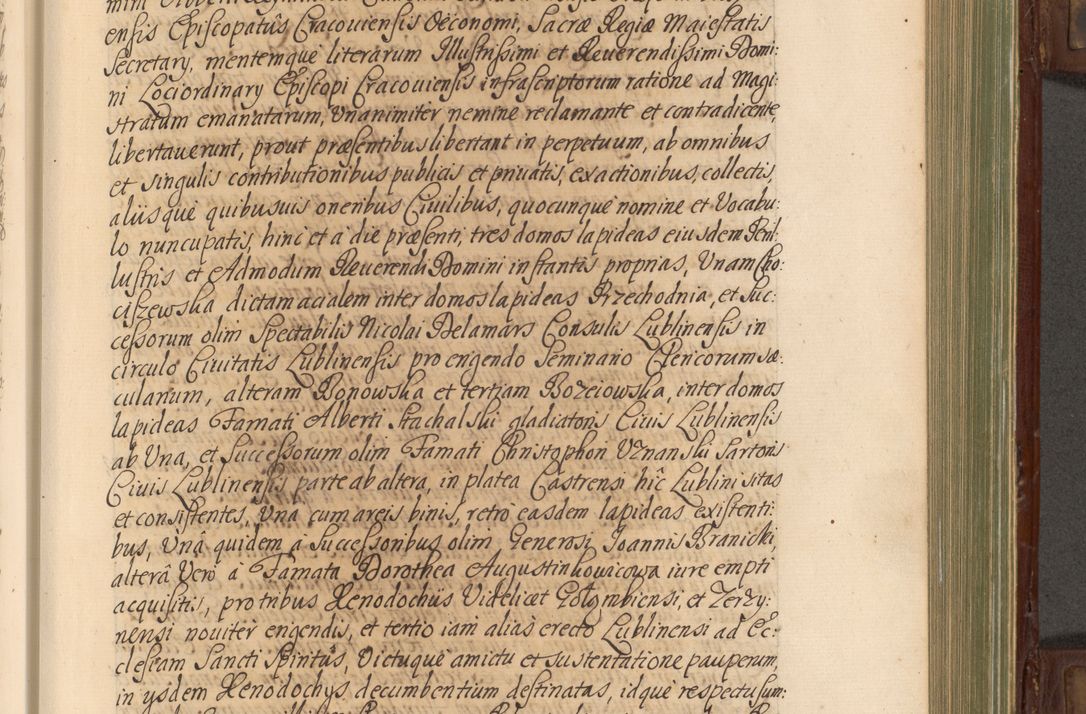 ensis Episcopatûs Cracouiensis Oeconomi, Sacræ Regiæ Maiestatis
Secretary, mentemque literarum Illustrissimi et Reuerendissimi Domi:
ni Lociordinary Episcopi Cracouiensis infrascriptorum ratione ad Magi:
stratum emanatarum, Vnanimiter nemine reclamante et contradicente,
libertauerunt, prout præsentibus libertant in perpetuum, ab omnibus
et singulis contributionibus publicis et priuatis, exactionibus, collectis,
aliisque quibusuis oneribus Ciuilibus, quocunque nomine et Vocabu:
lo nuncupatis, hinc et a die præsenti, tres domos lapideas eiusdem Peril:
lustris et Admodum Reuerendi Domini instantis proprias, Vnam Cho:
ciszewska dictam acialem inter domos lapideas Przechodnia, et Suc:
cessorum olim Spectabilis Nicolai Delamars Consulis Lublinensis in
circulo Ciuitatis Lublinensis pro erigendo Seminario Clericorum sæ:
cularium, alteram Bonowska et tertiam Bozeiowska, inter domos
lapideas Famati Alberti Stachalski gladiatoris Ciuis Lublinensis
ab Vna, et Successorum olim Famati Christophori Vznanski Sartoris
Ciuis Lublinensis parte ab altera, in platea Castrensi hîc Lublini sitas
et consistentes, Vna cum areis binis, retro easdem lapideas existenti:
bus, Vnâ quidem â Successoribus olim Generosi Joannis Branicki,
alterâ Verò â Famata Dorothea Augustinkouicowa iure empti
acquisitis, pro tribus Xenodochiis Videlicet Golgmbiensi, et Zerzy:
nensi nouiter erigendis, et tertio iam alias erecto Lublinensi ad Ec:
clesiam Sancti Spiritûs, Victuque amictu et sustentatione pauperum,
in ysdem Xenodochys decumbentium destinatas, idque respectu sum: